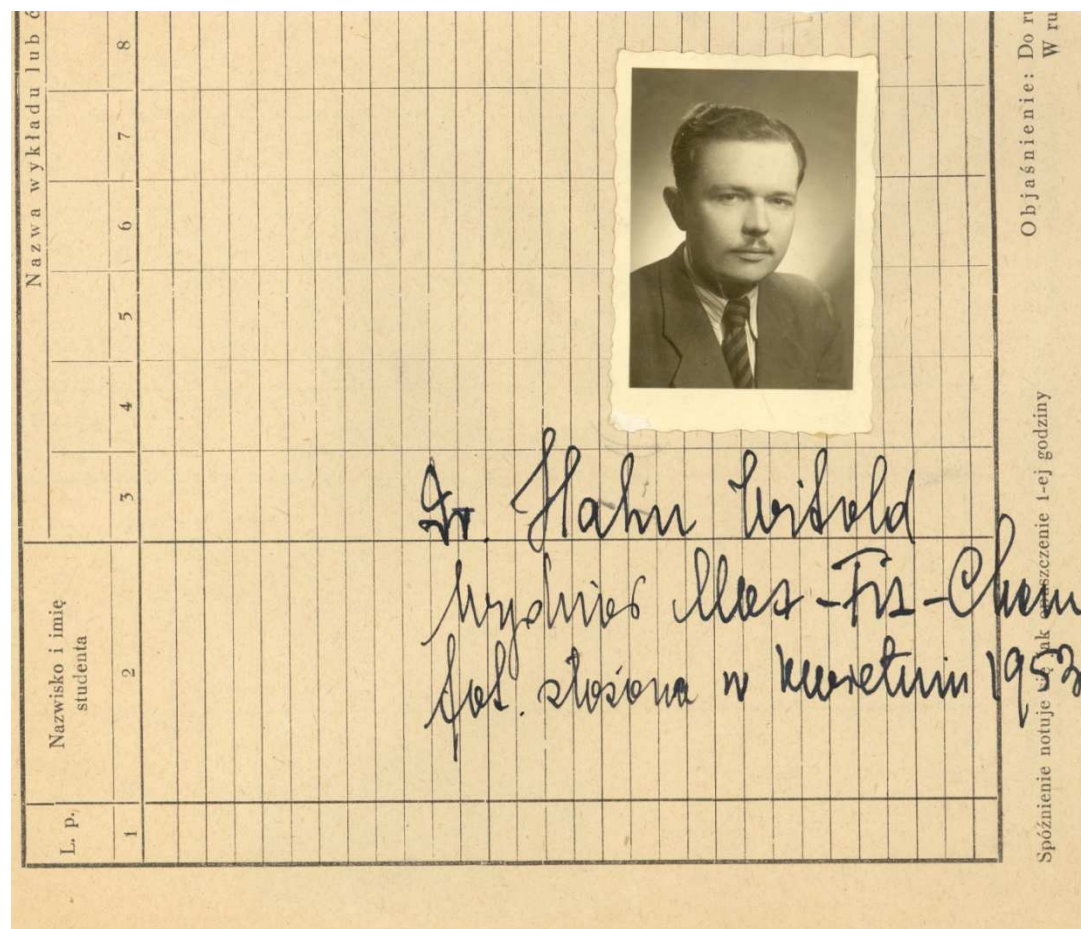 Nazwa wykładu lub ć
8
7
6
5
4
3
Nazwisko i imię
studenta
2
L. p.
1
Dr. Hahn Witold
Wydział Mat-Fiz-Chem
fot. złożona w kwietniu 1953
Objaśnienie: Do ru
W ru
Spóźnienie notuje się jak opuszczenie 1-ej godziny